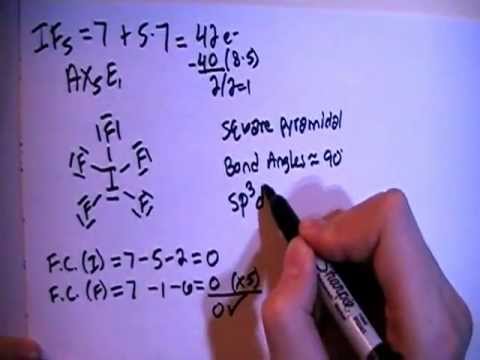 IF5 = 7 + 5·7 = 42 e-
-40 (8·5)
2/2=1
AX5E1
Square Pyramidal
Bond Angles ≈ 90°
sp3d
F
F I F
F F
F.C. (I) = 7-5-2 = 0
F.C. (F) = 7 -1-6 = 0 (x5)
0✓
Sharpie